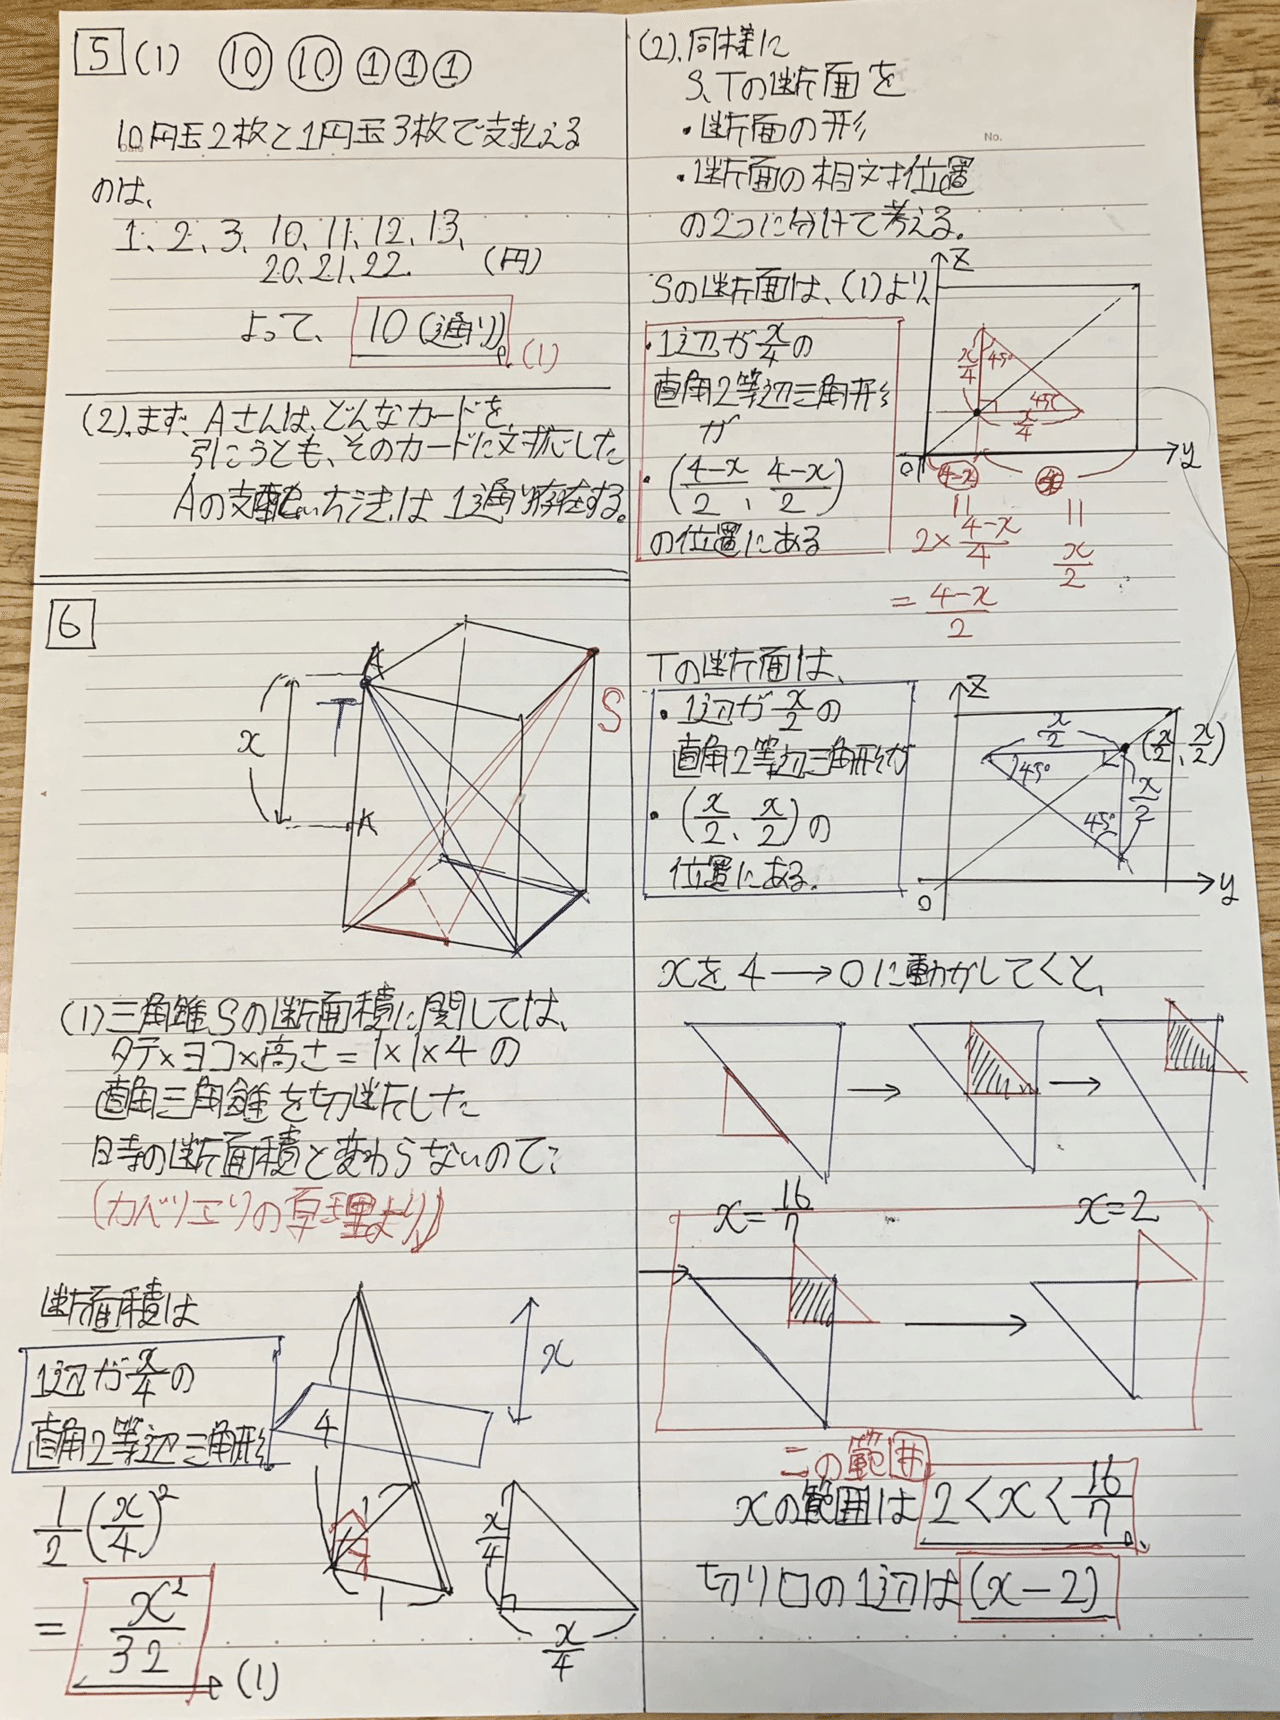 5 (1) 10 10 1 1 1
10円玉2枚と1円玉3枚で支払える
のは、
1、2、3、10、11、12、13、
20、21、22. (円)
よって、10(通り) (1)
(2).まず、Aさんは、どんなカードを、
引こうとも、そのカードに対応した
Aの支払い方法は1通り存在する。
6
A
T
S
x
K
(1)三角錐Sの断面積に関しては、
タテ×ヨコ×高さ=1×1×4の
直角三角錐を切断した
時の断面積と変わらないので:
(カバリエリの原理より)
断面積は
1辺がx/4の
直角2等辺三角形
1/2(x/4)²
= x²/32 (1)
4
1
1
x
x/4
x/4
(2).同様に
S、Tの断面を
・断面の形
・断面の相対位置
の2つに分けて考える。
Sの断面は、(1)より、
・1辺がx/4の
直角2等辺三角形
が
・(4-x/2、4-x/2)
の位置にある
z
x/4
45°
45°
x/4
O
y
4-x
=
2×4-x/4
= 4-x/2
=
x/2
Tの断面は、
・1辺がx/2の
直角2等辺三角形が
・(x/2、x/2)の
位置にある。
z
x/2
(x/2、x/2)
45°
x/2
45°
O
y
xを4→0に動かしてくと、
→ →
x=16/7
x=2
→
この範囲
xの範囲は 2<x<16/7
切り口の1辺は(x-2)
No.